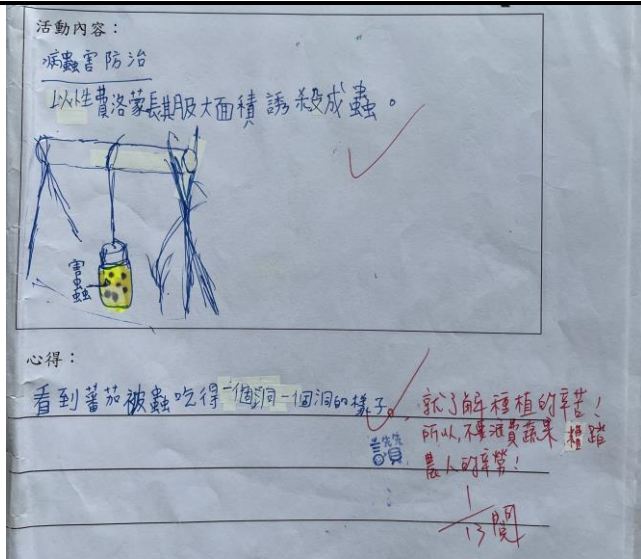 活動內容：
病蟲害防治
以性費洛蒙長期大面積誘殺成蟲。
害蟲
心得：
看到蕃茄被蟲吃得一個洞一個洞的樣子。
就了解種植的辛苦！
所以,不要浪費蔬果 糟蹋
農人的辛勞！
讚
1/13 閱